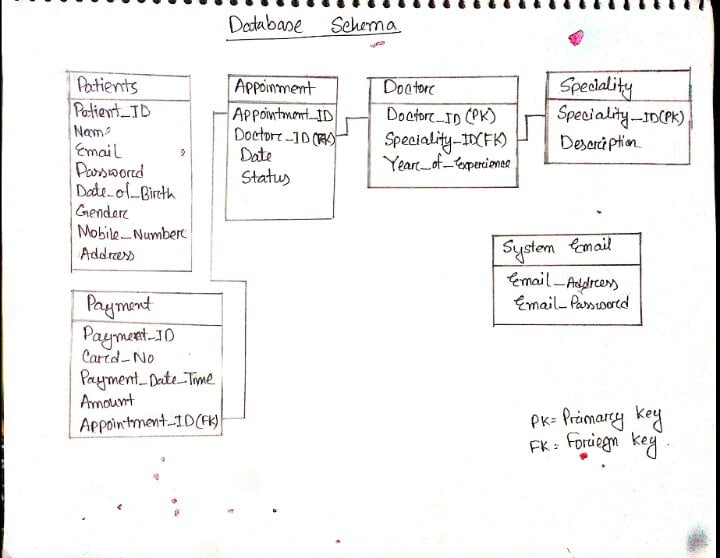 Database Schema
Patients
Patient_ID
Name
Email
Password
Date_of_Birth
Gender
Mobile_Number
Address
Appoinment
Appointment_ID
Doctor_ID (FK)
Date
Status
Doctor
Doctor_ID (PK)
Speciality-ID(FK)
Year_of_Experience
Speciality
Speciality_ID(PK)
Description
System Email
Email_Address
Email_Password
Payment
Payment_ID
Card_No
Payment_Date_Time
Amount
Appointment_ID(FK)
PK= Primary key
FK= Foriegn key.